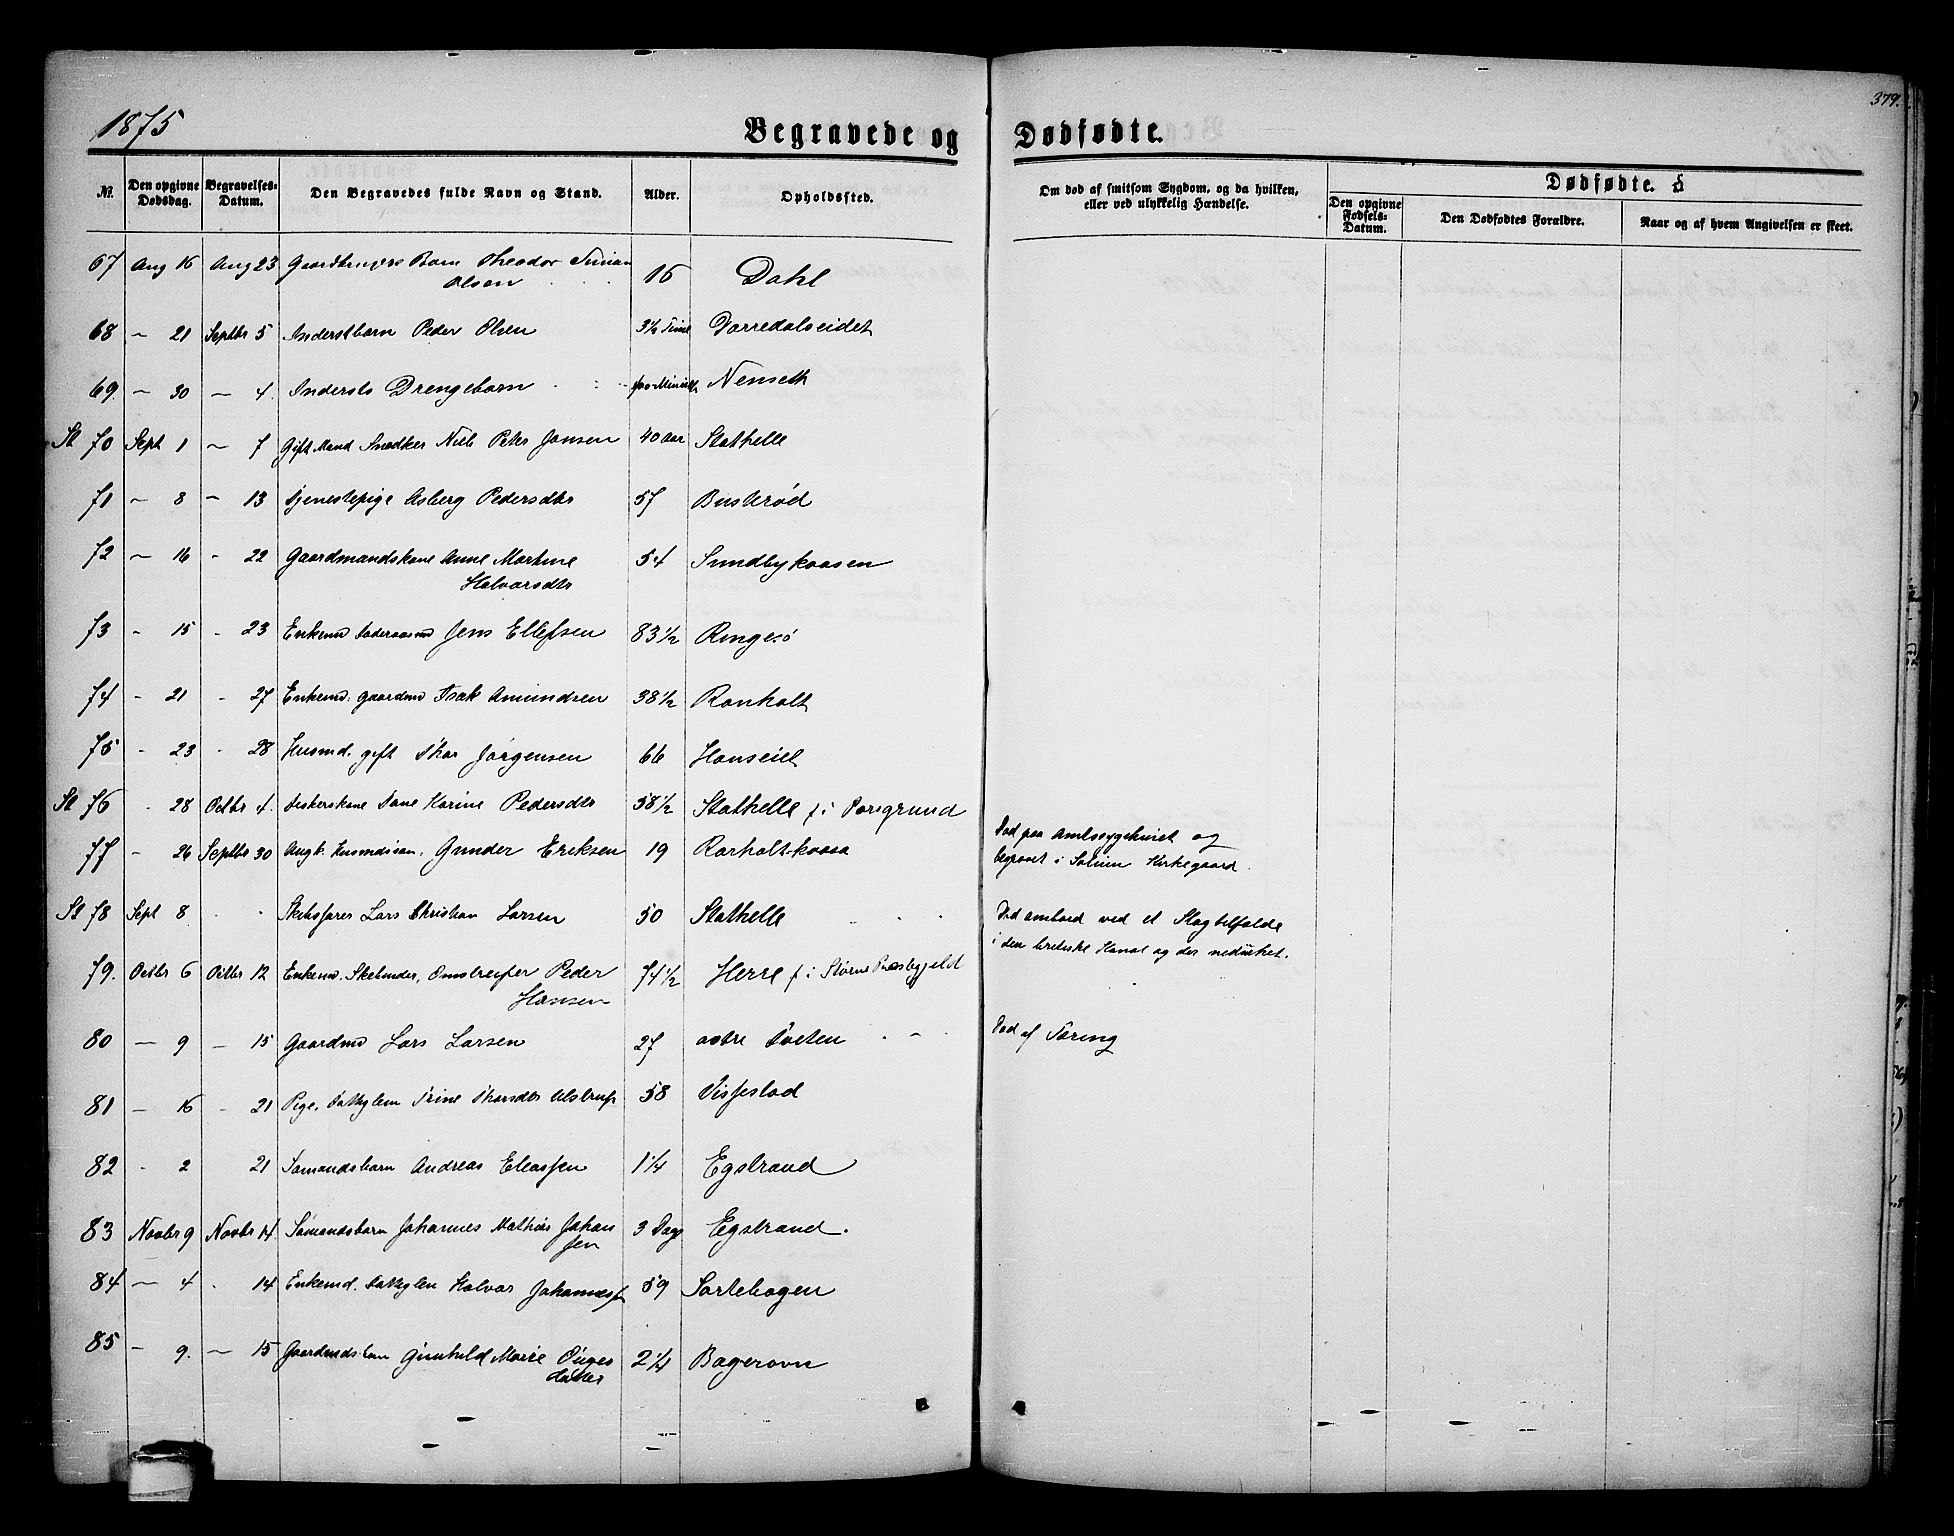 1875
379.
Begravede og Dødfødte.
Nr. Den opgivne Dødsdag. Begravelses-Datum. Den Begravedes fulde Navn og Stand. Alder. Opholdssted. Om død af smitsom Sygdom, og da hvilken, eller ved ulykkelig Hændelse. Dødfødte.
Den opgivne Fødsels-Datum. Den Dødfødtes Forældre. Naar og af hvem Angivelsen er skeet.
67 Aug 16 Aug 23 Barn Theodor
Olsen 16 Dahl
68 – 21 Septbr 5 Inderstbarn Peder Olsen 3½ Time Dorredalseidet
69. – 30 – 4. Indersts Drengebarn Nenseth
St 70 Sept 1 – 7 Gift Mand Snedker Niels Peter Jansen 40 aar Stathelle
71 – 8 – 13 Tjenestepige Asberg Pedersdtr 57 Buskrød
72 – 16 - 22 Gaardmandskone Anne Martine
Halvorsdtr 54 Sundbykaasen
73 - 15 - 23 Enkemd Jens Ellefsen 83½ Ringesø
74 - 21 - 27 Enkemd. gaardmd Isak Amundsen 38½ Ronholt
75 - 23 - 28 Husmd. gift Thor Jørgensen 66 Hanseiet
St 76 - 28 Octbr 4. Karine Pedersdtr 58½ Stathelle f. i Porsgrund
77 - 26 Septbr 30 Ungk. Gunder Eriksen 19 Rorholt-kaasa Død paa Amtssygehuset og
begravet i Solum Kirkegaard.
St 78 Sept 8 Skibsfører Lars Christian Larsen 50 Stathelle Død ombord ved et Slagtilfælde
i den britiske Kanal og der nedsænket.
79. Octbr 6 Octbr 12 Enkemd. Peder
Hansen 74½ Herre f. i Præstegjeld
80 – 9 – 15 Gaardmd Lars Larsen 27 østre Tveten Død af Tæring
81 – 16 - 21 Pige, Fattiglem Trine Thorsdtr 58 Vissestad
82 - 2 21 Sømandsbarn Andreas Eliassen 1¼ Egstrand
83 Novbr 9 Novbr 14 Sømandsbarn Johannes Mathias Johan
sen 3 Dage Egstrand.
84 – 4 - 14 Enkemd. Fattiglem Halvor Johannesse 59 Sortebogen
85 – 9. – 15 Gunhild Marie
datter 2¼ Bagerovn